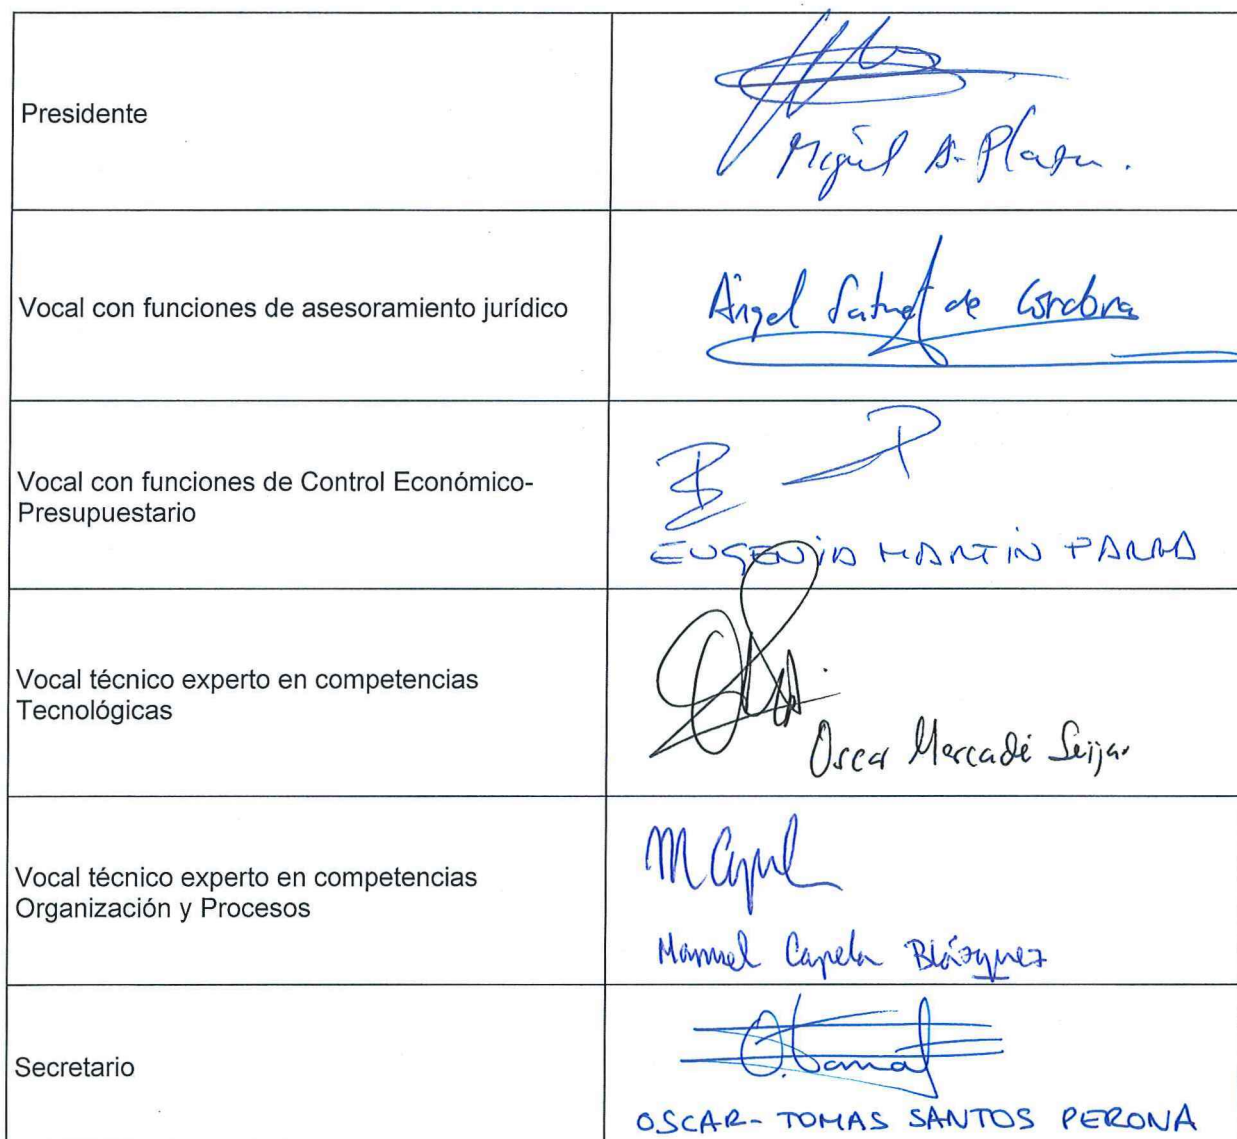 Presidente
Miguel A. Plaza.
Vocal con funciones de asesoramiento jurídico
Ángel de Cordoba
Vocal con funciones de Control Económico-
Presupuestario
EUGENIA MARTIN PARRA
Vocal técnico experto en competencias
Tecnológicas
Oscar Mercadé Seijas
Vocal técnico experto en competencias
Organización y Procesos
M Capel
Manuel Capela Blázquez
Secretario
OSCAR-TOMAS SANTOS PERONA